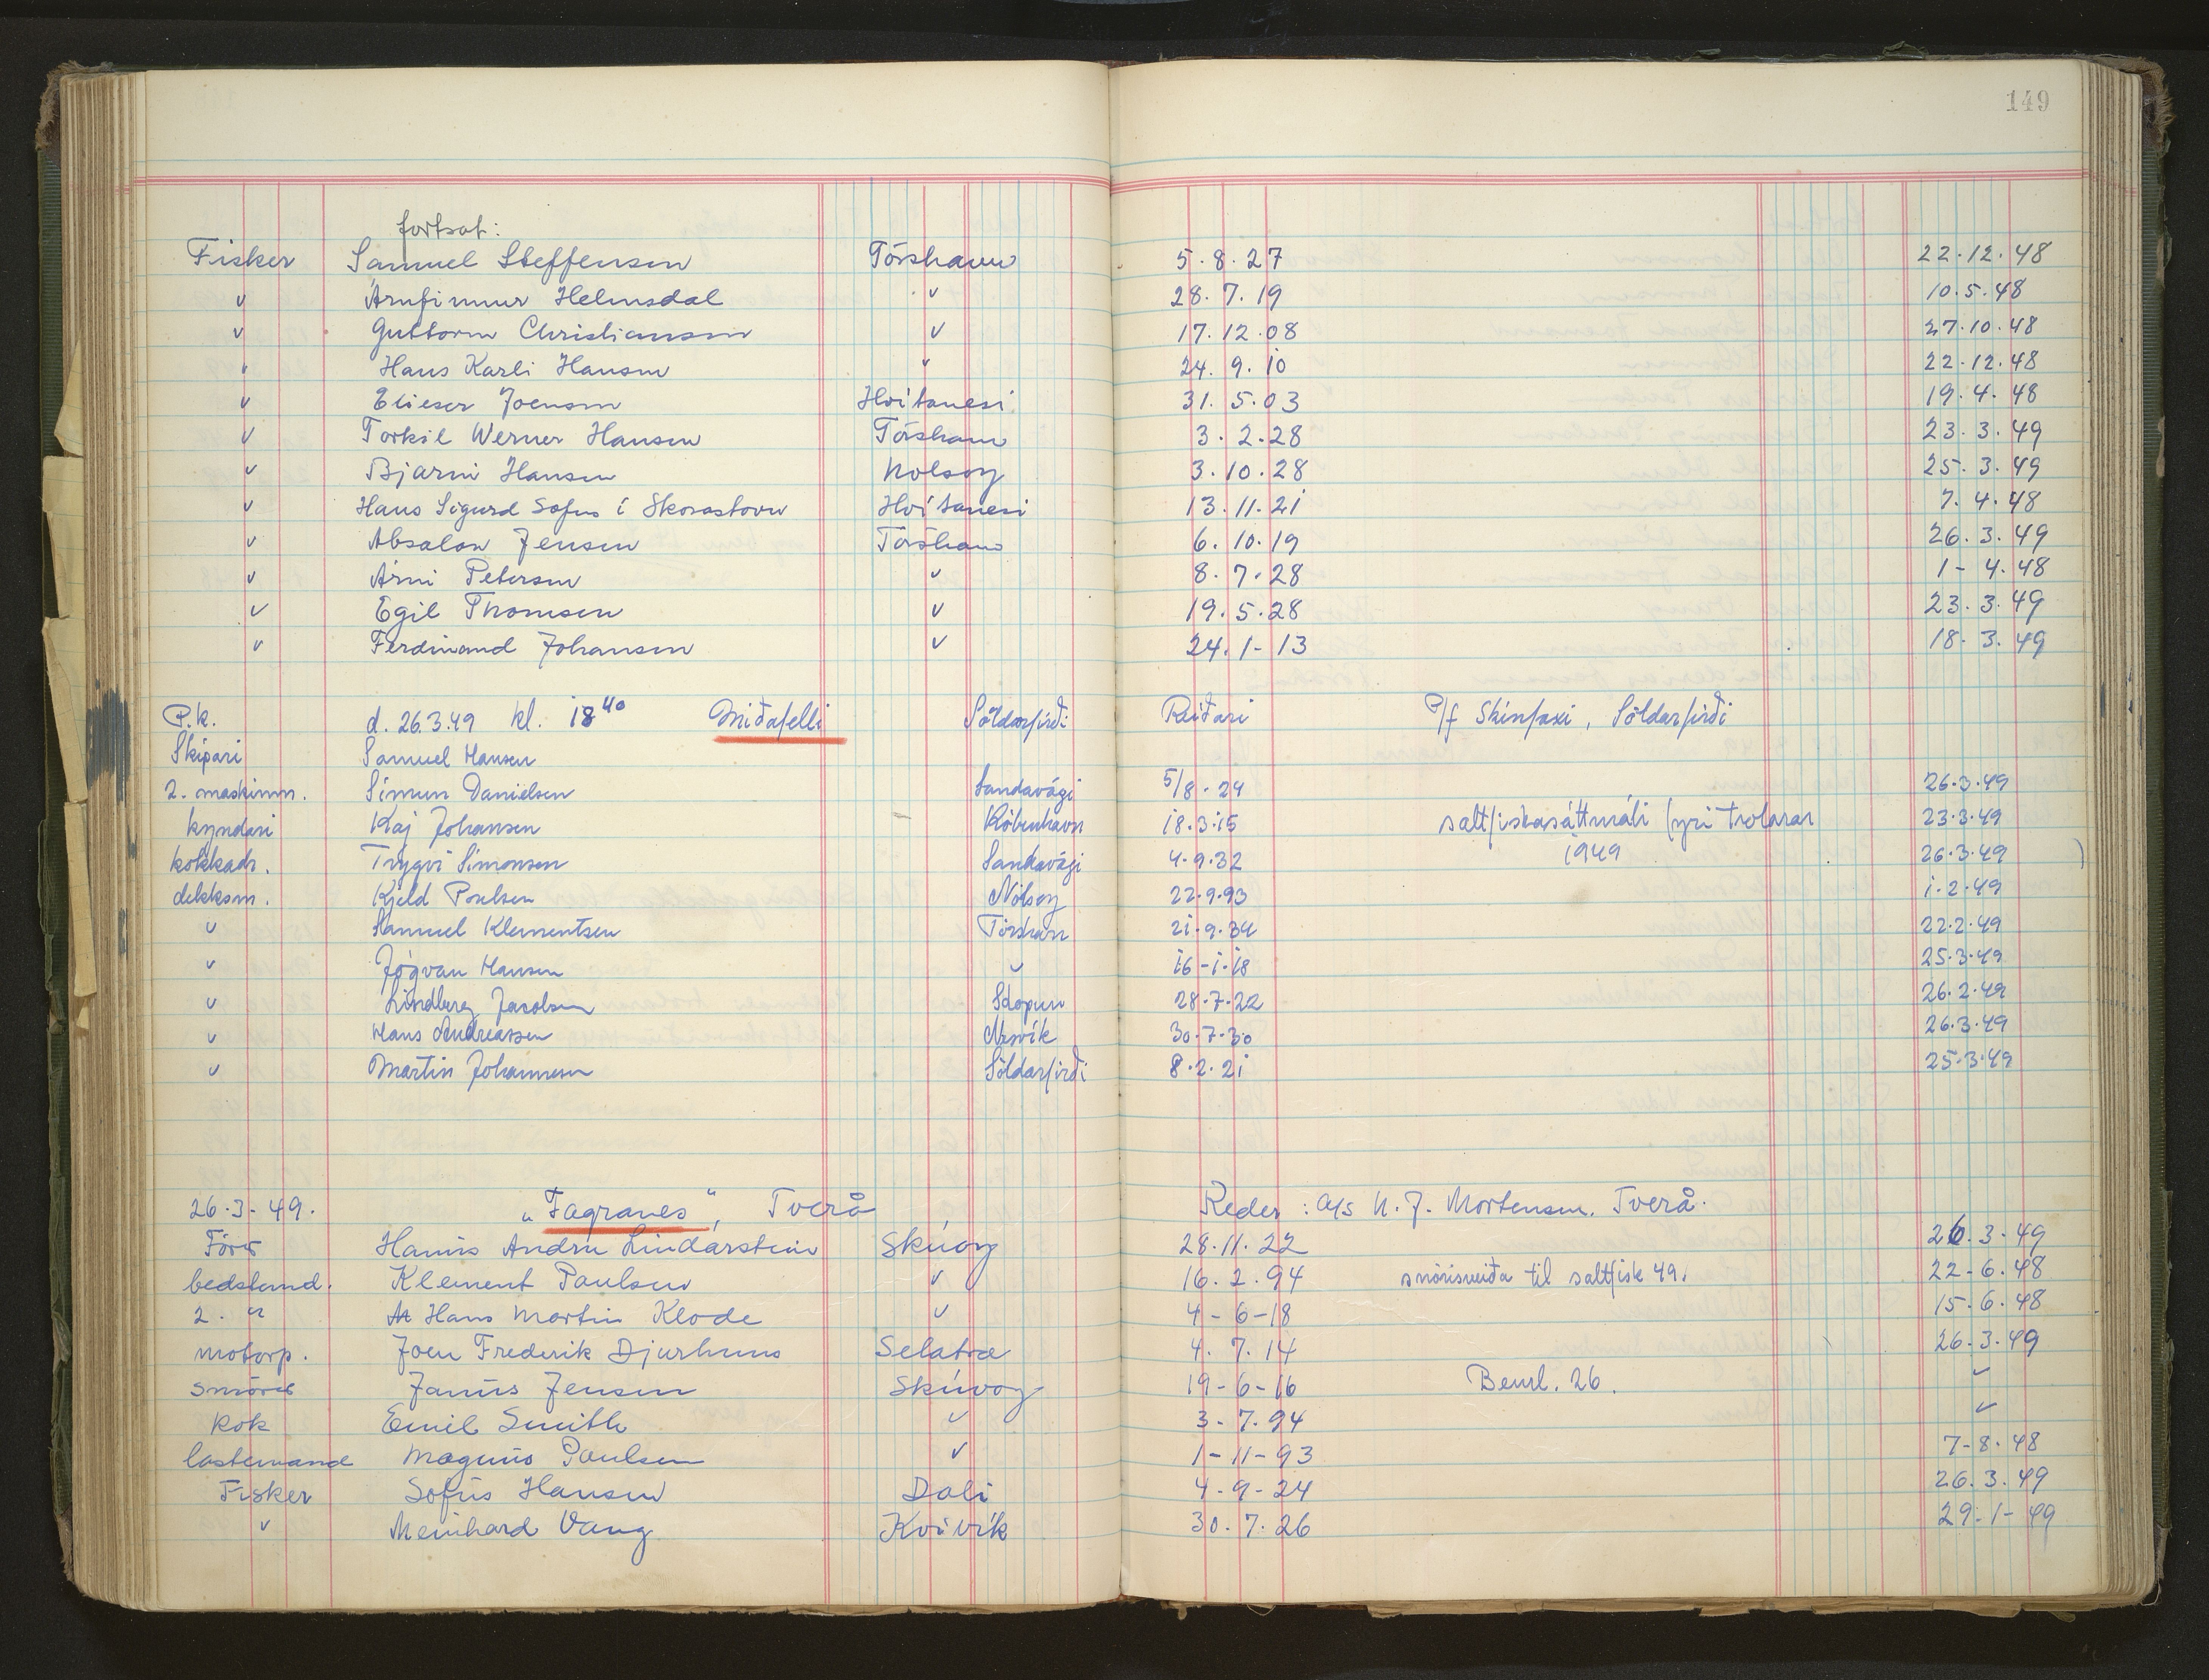 149
fortsat:
Fisker Samuel Steffensen Tórshavn 5.8.27 22.12.48
" Árnfinnur Helmsdal " 28.7.19 10.5.48
" Guttorm Christiansen " 17.12.08 27.10.48
" Hans Karli Hansen " 24.9.10 22.12.48
" Elieser Joensen Hvítanesi 31.5.03 19.4.48
" Torkil Werner Hansen Tórshavn 3.2.28 23.3.49
" Bjarni Hansen Nolsoy 3.10.28 25.3.49
" Hans Sigurd Sofus í Skorastovu Hvítanesi 13.11.21 7.4.48
" Absalon Jensen Tórshavn 6.10.19 26.3.49
" Árni Petersen " 8.7.28 1-4.48
" Egil Thomsen " 19.5.28 23.3.49
" Ferdinand Johansen " 24.1-13 18.3.49
P.k. d. 26.3.49 kl. 18⁴⁰ Miðafelli Söldarfirði Reiðari P/f Skinfaxi, Söldarfirði
Skipari Samuel Hansen
2. maskinm. Símun Danielsen Sandavági 5/8.24 26.3.49
kyndari Kaj Johansen Köbenhavn 18.3.15 saltfiskasáttmáli fyri trolarar 23.3.49
kokkadr. Trygvi Simonsen Sandavági 4.9.32 1949 26.3.49
dekksm. Kjeld Poulsen Nólsoy 22.9.93 1.2.49
" Samuel Klementsen Tórshavn 21.9.34 22.2.49
" Jógvan Hansen " 16-1.18 25.3.49
" Lindberg Jacobsen Skopun 28.7.22 26.2.49
" Hans Andreassen Nesvík 30.7.30 26.3.49
" Martin Johannesen Söldarfirði 8.2.21 25.3.49
26.3-49. "Fagranes", Tverå Reder: A/S N. J. Mortensen. Tverå.
Förer Hanus Andru Lindarstein Skúvoy 28.11.22 26.3.49
bedstemd. Klement Poulsen " 16.2.94 snörisveiða til saltfisk 49. 22-6.48
2. " Hans Martin Klode " 4-6-18 15.6.48
motorp. Joen Frederik Djurhuus Selatræ 4.7.14 26.3.49
smörer Janus Jensen Skúvoy 19-6-16 Beml. 26. "
kok Emil Smith " 3.7.94 "
lastemand Magnus Poulsen " 1-11-93 7-8.48
Fisker Sofus Hansen Dali 4-9-24 26.3.49
" Meinhard Vang Kvívík 30.7.26 29.1-49